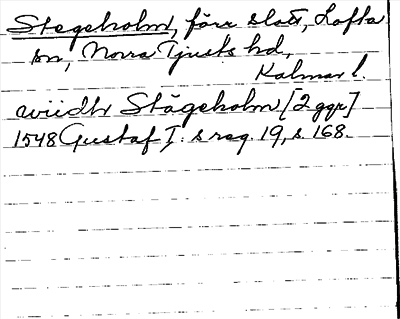 Stegeholm, förr slott, Lofta
sn, Norra Tjusts hd,
Kalmar l.
widh Stägeholm [2 ggr]
1548 Gustaf I:s reg. 19, s. 168.